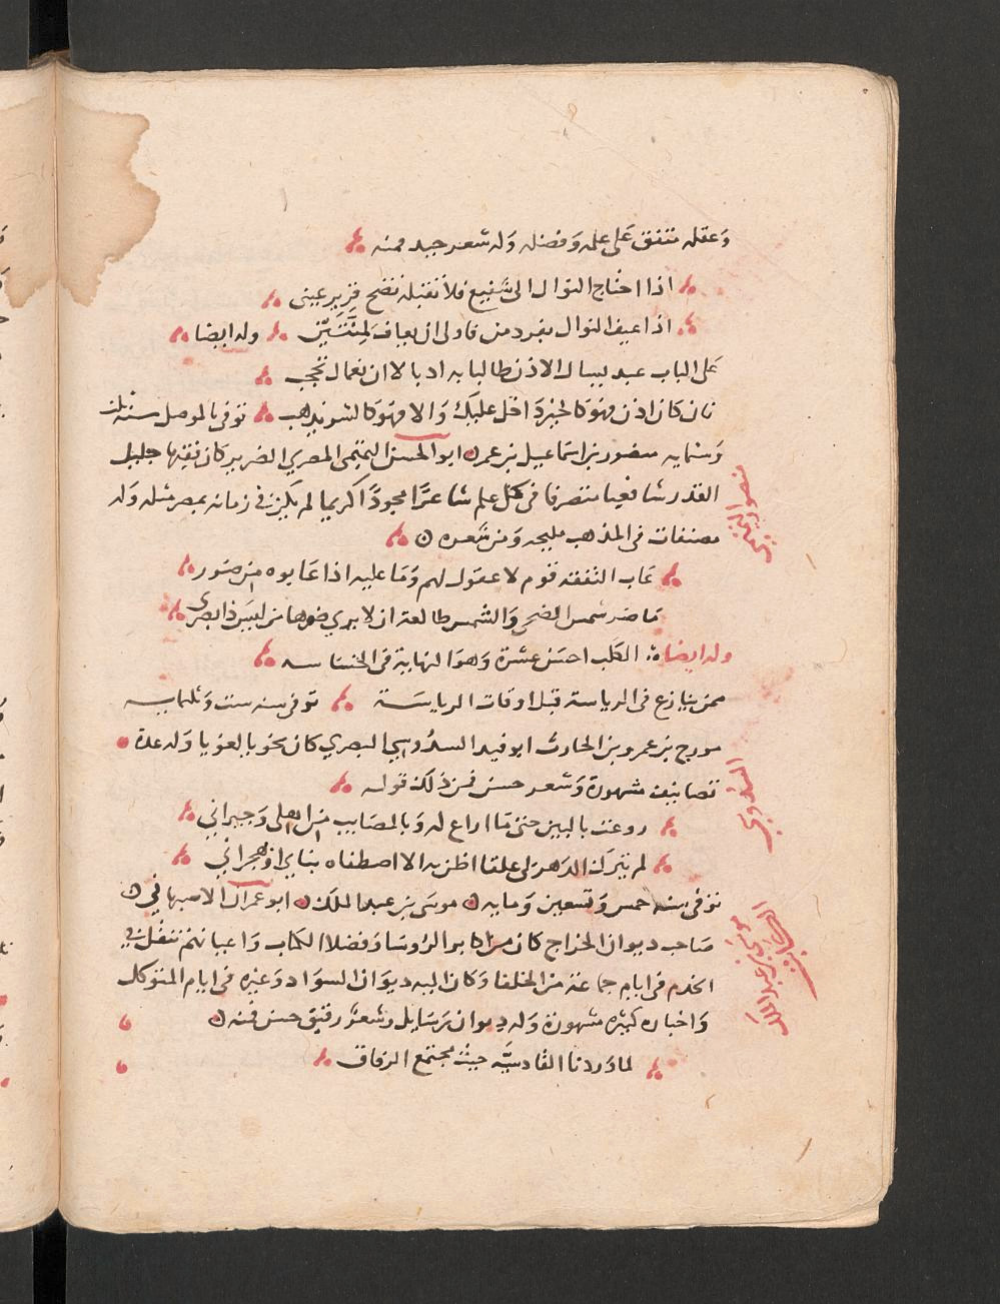 وعقله متفق على علمه وفضله وله شعر جيد فمنه
اذا احتاج النوال الى شفيع فلا تقبله تضح قرير عينى
اذا عيف النوال بفرد من فاولى ان يعاف لمنتين وله ايضا
على الباب عبد يسال الاذن طالبا به ادبا لا ان نعمال تحجب
فان كان اذن فهو كالخير داخل عليك والا فهو كالشر يذهب توفى بالموصل سنة ثلث
وستمايه منصور بن اسماعيل بن عمر ابو الحسن التميمى المصري الضرير كان فقيها جليل
القدر شافعيا متصرفا فى كل علم شاعرا مجودا كريما لم يكن فى زمانه بمصر مثله وله
مصنفات فى المذهب مليحه ومن شعره
عاب التفقه قوم لا عقول لهم وما عليه اذا عابوه من ضرر
ما ضر شمس الضحى والشمس طالعة ان لا يرى ضوها من ليس ذا بصر
وله ايضا الكلب احسن عشرة وهو النهاية فى الخساسه
ممن ينازع فى الرياسة قبل اوقات الرياسة توفى سنه ست وثلثمايه
مورج بن عمرو بن الحارث ابو فيد السدوسي البصري كان نحويا لغويا وله عدة
تصانيف مشهورة وشعر حسن فمن ذلك قوله
روعت بالبين حتى ما اراع له وبالمصايب من اهلى وجيرانى
لم يترك الدهر لى علقا اظن به الا اصطفاه بناي او هجرانى
توفى سنه خمس وتسعين ومايه موسى بن عبد الملك ابو عمران الاصبهانى
صاحب ديوان الخراج كان من اكابر الروسا وفضلا الكتاب واعيانهم تنقل فى
الخدم فى ايام جماعة من الخلفا وكان اليه ديوان السواد وغيره فى ايام المتوكل
واخباره كثيره مشهورة وله ديوان رسايل وشعر رقيق حسن فمنه
لما وردنا القادسيه حيث مجتمع الرفاق
منصور
السدوسي
موسى بن عبد الملك